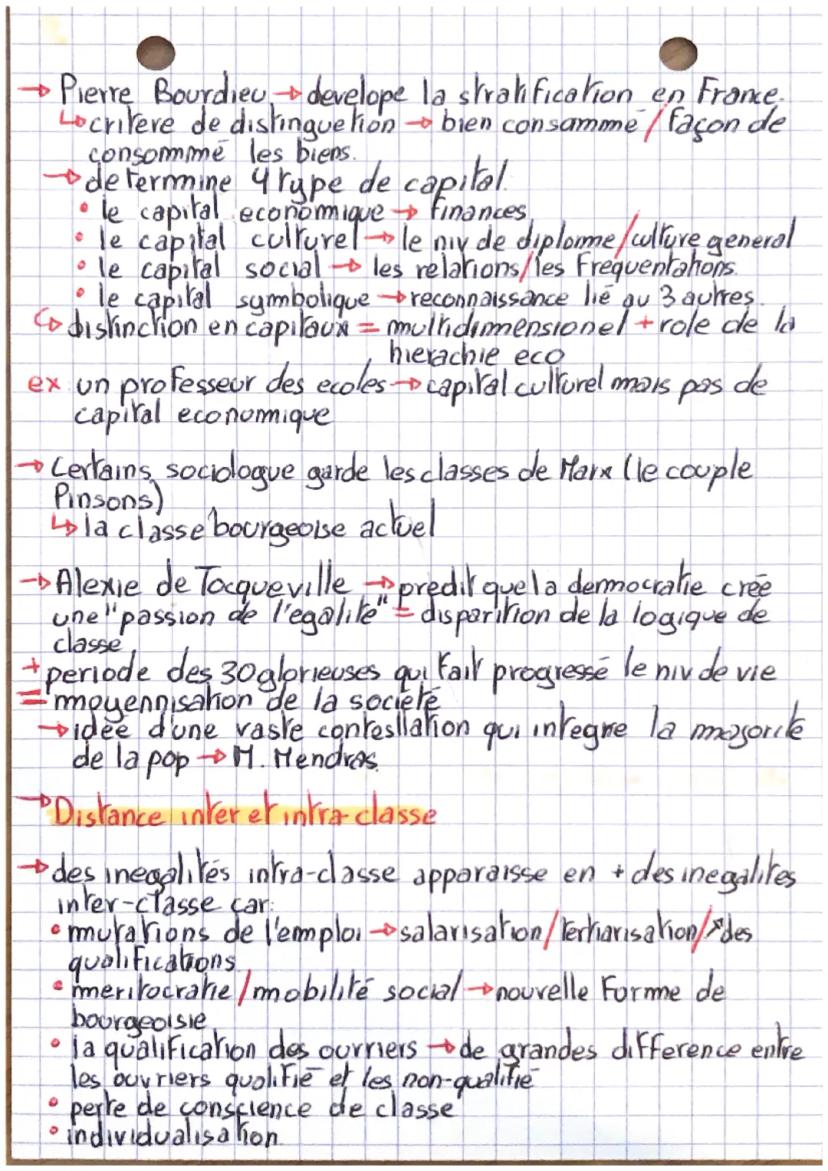 → Pierre Bourdieu → develope la stratification en France.
↳ critère de distinguetion → bien consammé / façon de
consommmé les biens.
→ determine 4 type de capital.
• le capital economique → finances
• le capital culturel → le niv de diplome/culture general
• le capital social → les relations/les frequentations.
• le capital symbolique → reconnaissance lié au 3 autres.
↳ distinction en capitaux = multidimensionel + role de la
hierachie eco
ex un professeur des ecoles → capital culturel mais pas de
capital economique
→ Certains sociologue garde les classes de Marx (le couple
Pinsons)
↳ la classe bourgeoise actuel
→ Alexie de Tocqueville → predit que la democratie créé
une "passion de l'egalité" = disparition de la logique de
classe
+ periode des 30 glorieuses qui fait progressé le niv de vie
= moyennisation de la société
→ idée d'une vaste constellation qui integre la majorité
de la pop → M. Mendras.
→ Distance inter et intra-classe
→ des inegalités intra-classe apparaisse en + des inegalites
inter-classe car:
• mutations de l'emploi → salarisation/tertiarisation/↗ des
qualifications
• meritocratie/mobilité social → nouvelle forme de
bourgeoisie
• la qualification des ouvriers → de grandes difference entre
les ouvriers qualifié et les non-qualifié
• perte de conscience de classe
• individualisation.